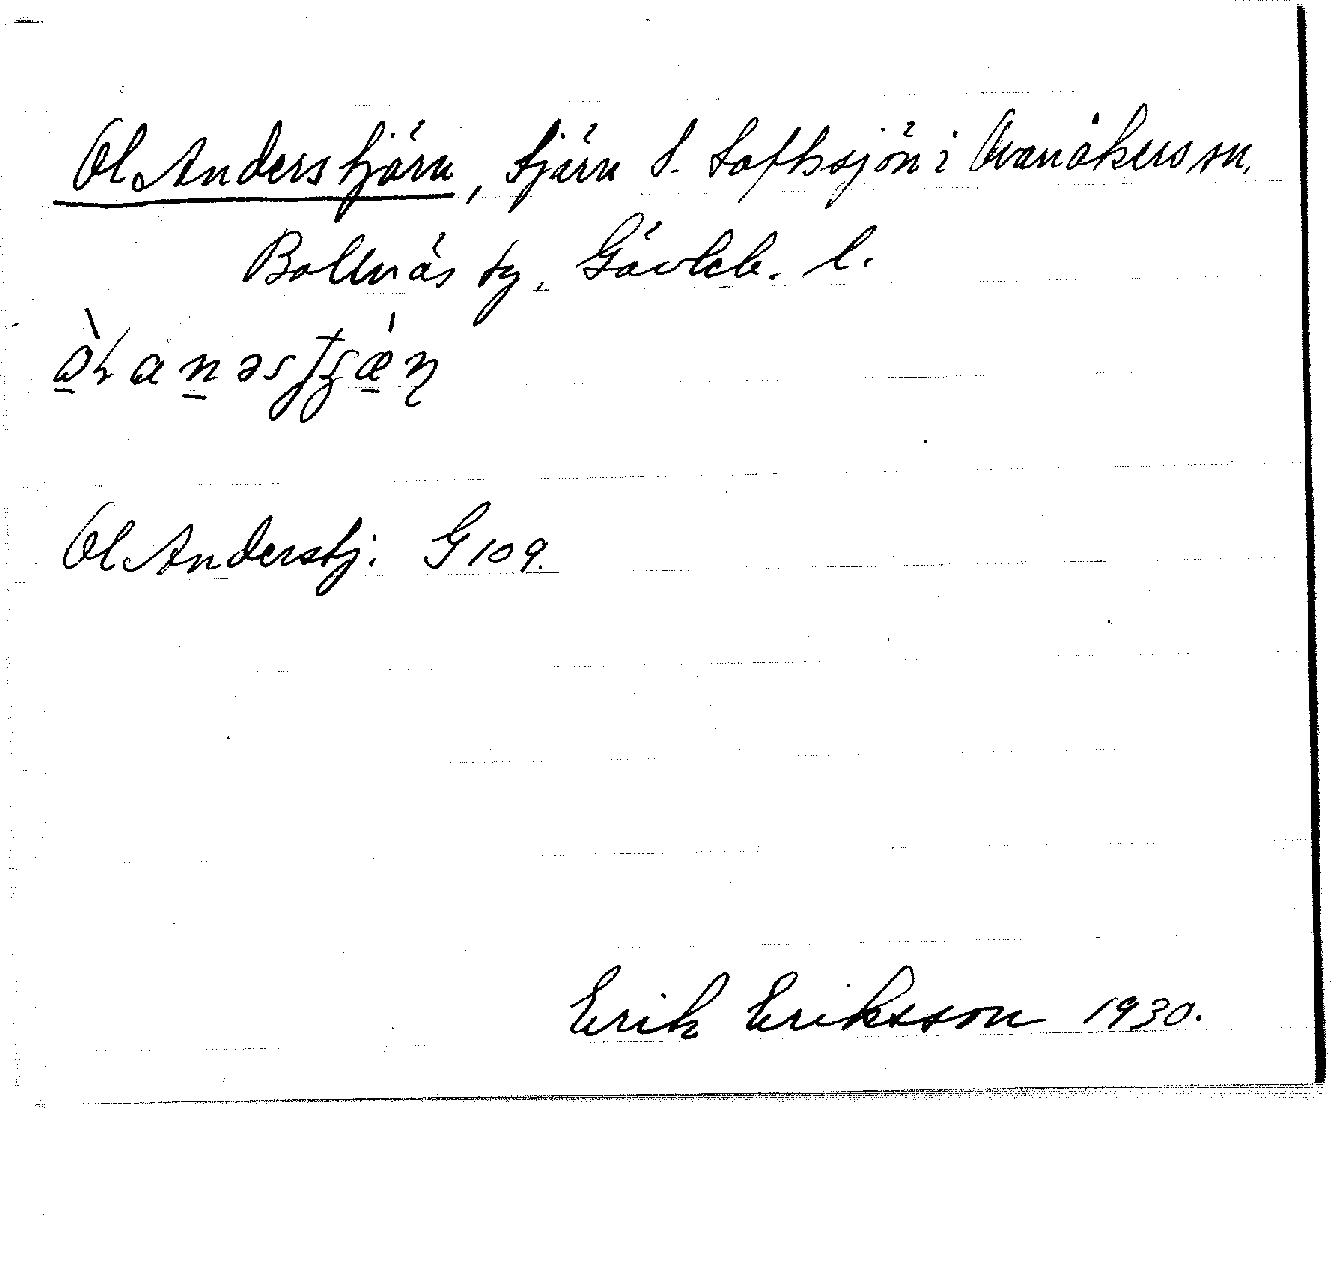 Ol Anderstjärn, tjärn S. Loftssjön i Ovanåkers sn.
Bollnäs tg, Gävleb. l.
Ol Anderstj: G 109.
Erik Eriksson 1930.